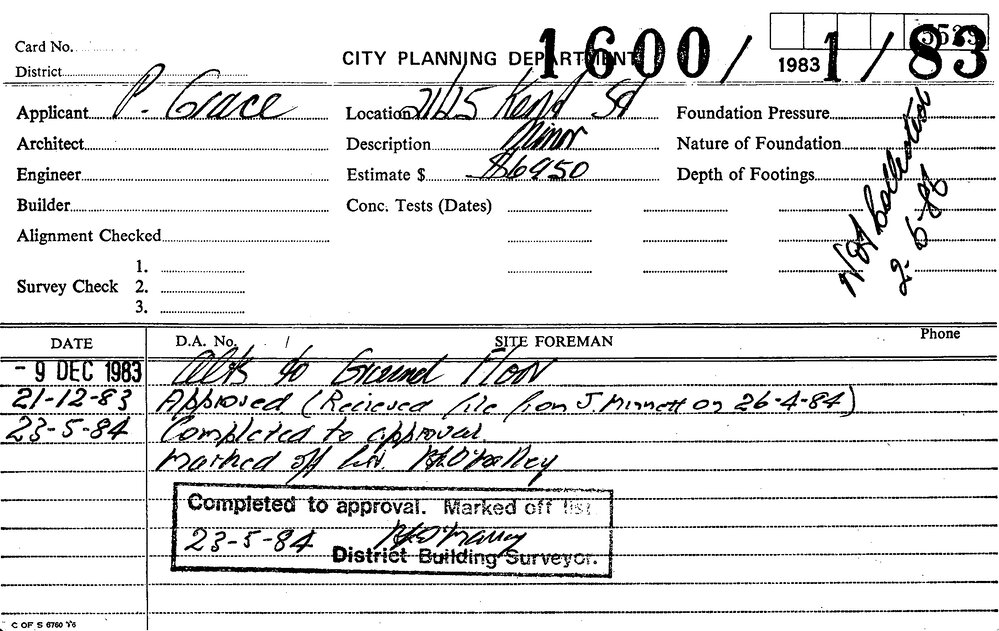 Card No.
CITY PLANNING DEPARTMENT 1600/1/83
1983
District
Applicant P. Grace Location 21/25 Kent St Foundation Pressure
Architect Description Minor Nature of Foundation
Engineer Estimate $ $6950 Depth of Footings
Builder Conc. Tests (Dates)
Not Collected
2.6.86
Alignment Checked
1.
Survey Check 2.
3.
DATE D.A. No. / SITE FOREMAN Phone
- 9 DEC 1983 Alts to Ground Floor
21-12-83 Approved (Recieved file from J. Minnett on 26-4-84)
23-5-84 Completed to approval.
Marked off list. O'Malley
Completed to approval. Marked off list
23-5-84 O'Malley
District Building Surveyor.
C OF S 6760